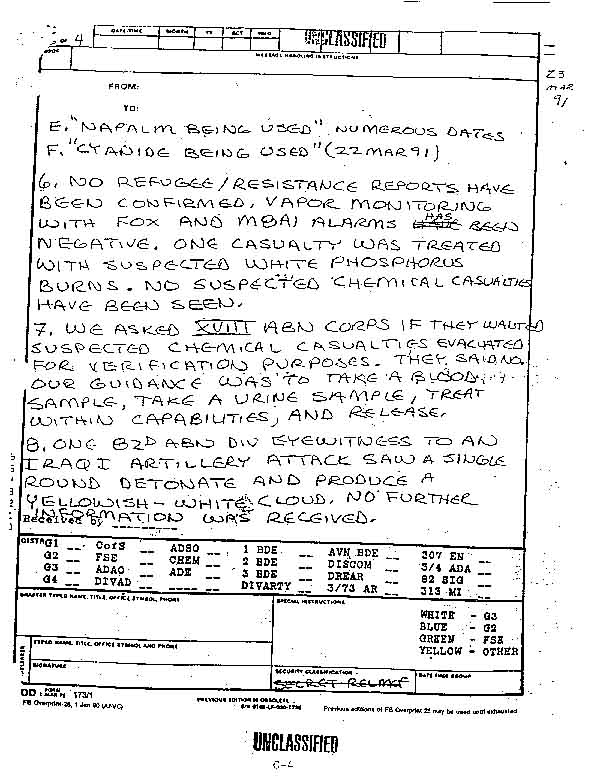 OF 4
DATE-TIME MONTH YR ACT INFO
UNCLASSIFIED
BOOK MESSAGE HANDLING INSTRUCTIONS
23
MAR
91
FROM:
TO:
E. "NAPALM BEING USED" NUMEROUS DATES
F. "CYANIDE BEING USED" (22 MAR 91)
6. NO REFUGEE/RESISTANCE REPORTS HAVE
BEEN CONFIRMED, VAPOR MONITORING
WITH FOX AND M8A1 ALARMS HAS BEEN
NEGATIVE. ONE CASUALTY WAS TREATED
WITH SUSPECTED WHITE PHOSPHORUS
BURNS. NO SUSPECTED CHEMICAL CASUALTIES
HAVE BEEN SEEN.
7. WE ASKED XVIII ABN CORPS IF THEY WANTED
SUSPECTED CHEMICAL CASUALTIES EVACUATED
FOR VERIFICATION PURPOSES. THEY SAID NO.
OUR GUIDANCE WAS TO TAKE A BLOOD
SAMPLE, TAKE A URINE SAMPLE, TREAT
WITHIN CAPABILITIES, AND RELEASE.
8. ONE 82D ABN DIV EYEWITNESS TO AN
IRAQI ARTILLERY ATTACK SAW A SINGLE
ROUND DETONATE AND PRODUCE A
YELLOWISH-WHITE CLOUD. NO FURTHER
INFORMATION WAS RECEIVED.
Received by
DISTR G1 __ CofS __ ADSO __ 1 BDE __ AVN BDE __ 307 EN __
G2 __ FSE __ CHEM __ 2 BDE __ DISCOM __ 3/4 ADA __
G3 __ ADAO __ ADE __ 3 BDE __ DREAR __ 82 SIG __
G4 __ DIVAD __ ____ __ DIVARTY __ 3/73 AR __ 313 MI __
DRAFTER TYPED NAME, TITLE, OFFICE SYMBOL, PHONE
SPECIAL INSTRUCTIONS
WHITE - G3
BLUE - G2
GREEN - FSE
YELLOW - OTHER
TYPED NAME, TITLE, OFFICE SYMBOL AND PHONE
SIGNATURE
SECURITY CLASSIFICATION
SECRET
DATE TIME GROUP
DD FORM 173/1
PREVIOUS EDITION IS OBSOLETE
FB Overprint 25, 1 Jan 90
Previous editions of FB Overprint 25 may be used until exhausted
UNCLASSIFIED